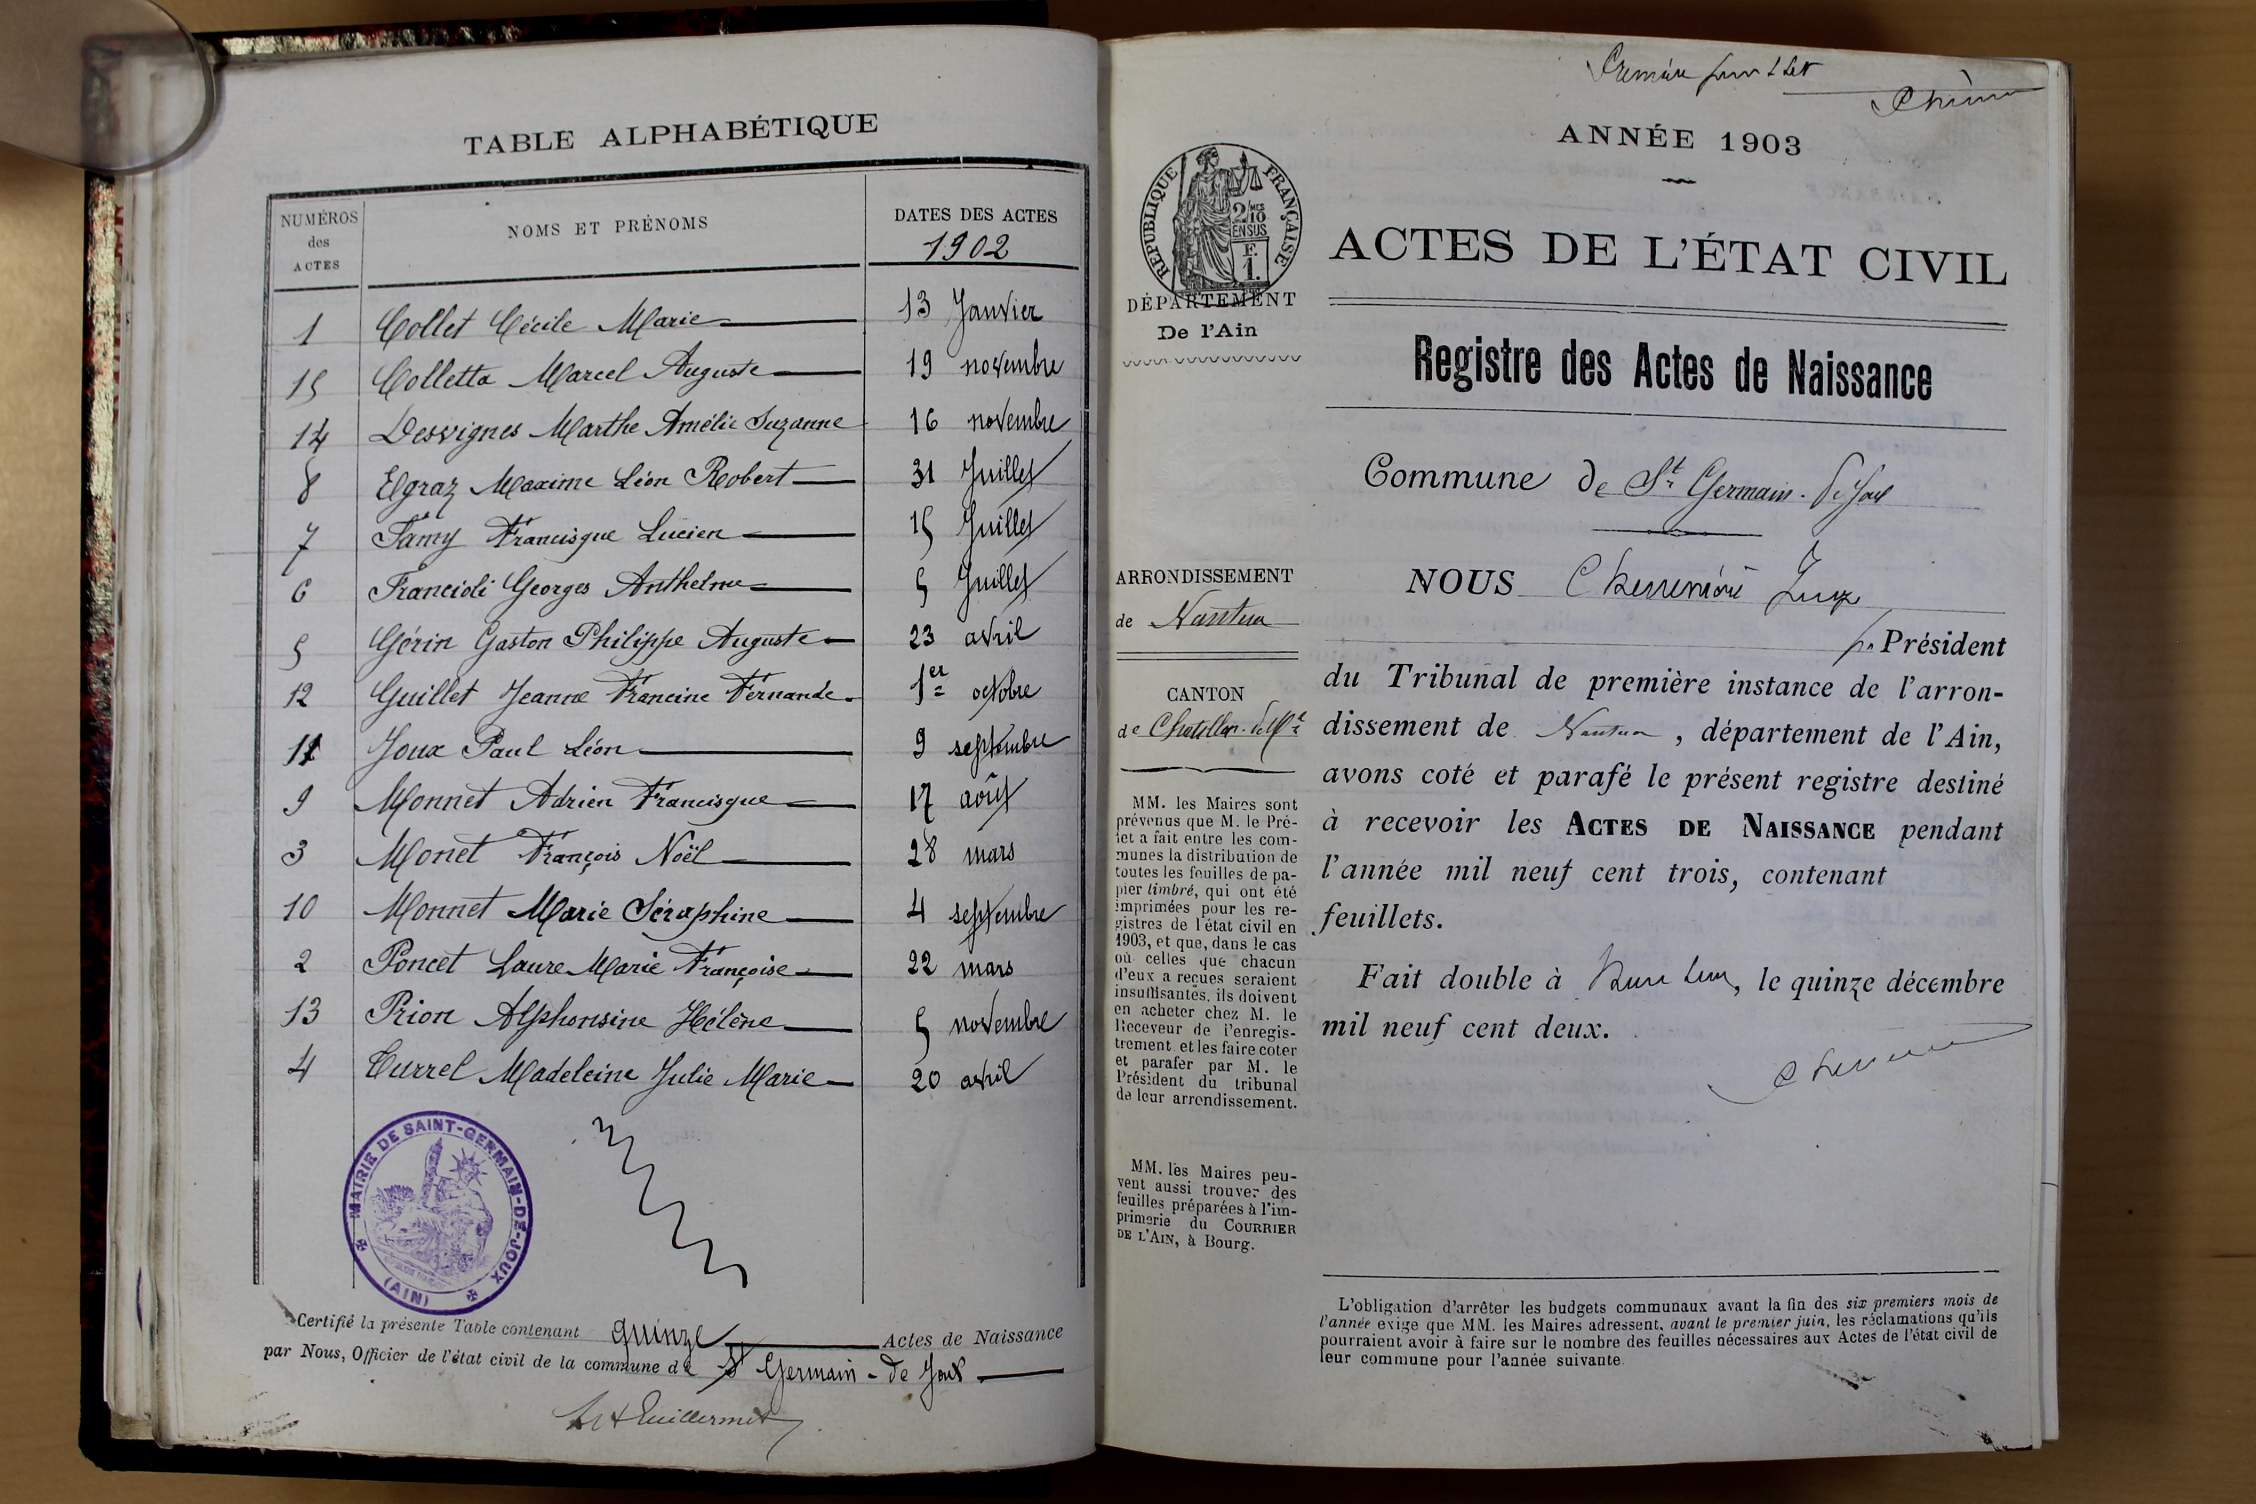 TABLE ALPHABÉTIQUE
NUMÉROS des ACTES
NOMS ET PRÉNOMS
DATES DES ACTES
1902
1 Collet Cécile Marie 13 Janvier
15 Colletta Marcel Auguste 19 novembre
14 Desvignes Marthe Amélie Suzanne 16 novembre
8 Egraz Maxime Léon Robert 31 Juillet
7 Famy Francisque Lucien 15 Juillet
6 Francioli Georges Anthelme 5 Juillet
5 Gérin Gaston Philippe Auguste 23 avril
12 Guillet Jeanne Francine Fernande 1er octobre
11 Joux Paul Léon 9 septembre
9 Monnet Adrien Francisque 17 août
3 Monet François Noël 28 mars
10 Monnet Marie Séraphine 4 septembre
2 Poncet Laure Marie Françoise 22 mars
13 Prion Alphonsine Hélène 5 novembre
4 Turrel Madeleine Julie Marie 20 avril
MAIRIE DE SAINT-GERMAIN-DE-JOUX
(AIN)
Certifié la présente Table contenant quinze Actes de Naissance
par Nous, Officier de l'état civil de la commune de St Germain-de Joux
Guillermet
Premier
ANNÉE 1903
RÉPUBLIQUE FRANÇAISE
2/10 MES
EN SUS
F.
1.
ACTES DE L'ÉTAT CIVIL
DÉPARTEMENT
De l'Ain
Registre des Actes de Naissance
Commune de St Germain-de Joux
ARRONDISSEMENT
de Nantua
CANTON
de Chatillon-de Mle
MM. les Maires sont
prévenus que M. le Pré-
fet a fait entre les com-
munes la distribution de
toutes les feuilles de pa-
pier timbré, qui ont été
imprimées pour les re-
gistres de l'état civil en
1903, et que, dans le cas
où celles que chacun
d'eux a reçues seraient
insuffisantes, ils doivent
en acheter chez M. le
Receveur de l'enregis-
trement et les faire coter
et parafer par M. le
Président du tribunal
de leur arrondissement.
MM. les Maires peu-
vent aussi trouver des
feuilles préparées à l'im-
primerie du COURRIER
DE L'AIN, à Bourg.
NOUS
Président
du Tribunal de première instance de l'arron-
dissement de Nantua, département de l'Ain,
avons coté et parafé le présent registre destiné
à recevoir les ACTES DE NAISSANCE pendant
l'année mil neuf cent trois, contenant
feuillets.
Fait double à , le quinze décembre
mil neuf cent deux.
L'obligation d'arrêter les budgets communaux avant la fin des six premiers mois de
l'année exige que MM. les Maires adressent, avant le premier juin, les réclamations qu'ils
pourraient avoir à faire sur le nombre des feuilles nécessaires aux Actes de l'état civil de
leur commune pour l'année suivante.